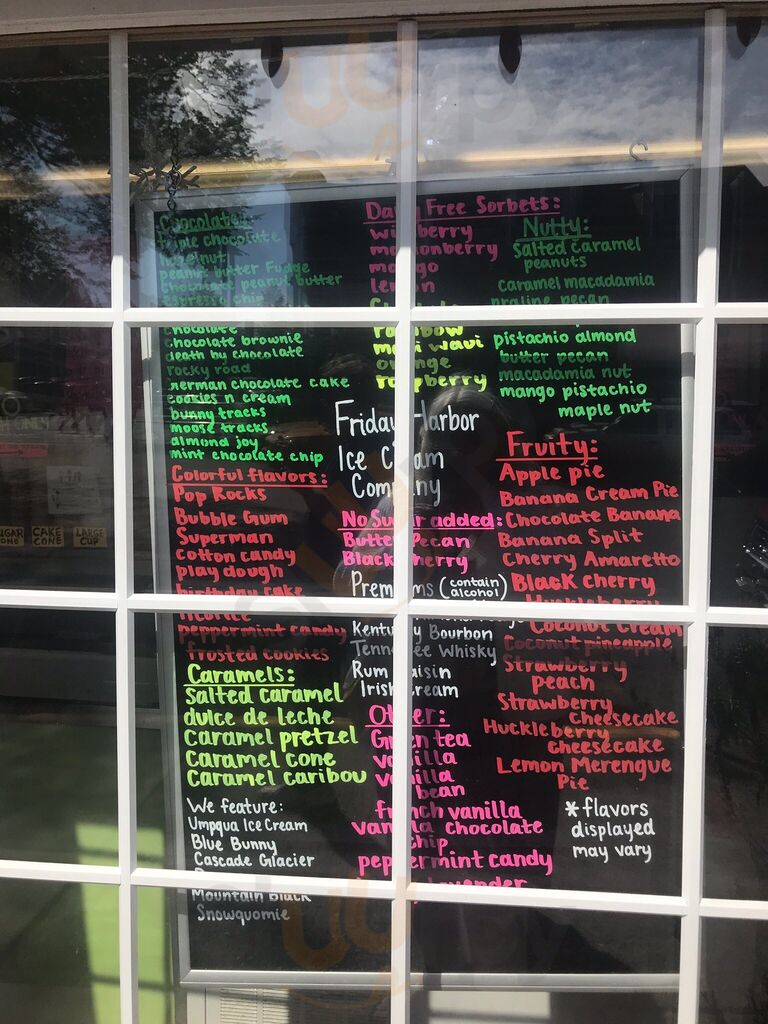 Chocolatey:
triple chocolate
hazelnut
peanut butter Fudge
Chocolate peanut butter
espresso chip
chocolate
chocolate brownie
death by chocolate
rocky road
german chocolate cake
cookies n cream
bunny tracks
moose tracks
almond joy
mint chocolate chip
Colorful flavors:
Pop Rocks
Bubble Gum
Superman
cotton candy
play dough
birthday cake
licorice
peppermint candy
frosted cookies
Caramels:
salted caramel
dulce de leche
caramel pretzel
Caramel cone
Caramel caribou
We feature:
Umpqua Ice Cream
Blue Bunny
Cascade Glacier
Mountain Black
Snowquomie
Dairy Free Sorbets:
wildberry
mango
lemon
rainbow
maui waui
orange
raspberry
Friday Harbor
Ice Cream
Company
No Sugar added:
Butter Pecan
Black cherry
Premiums (contain
alcohol)
Kentucky Bourbon
Tennessee Whisky
Rum raisin
Irish cream
Other:
Green tea
vanilla
vanilla
bean
french vanilla
vanilla chocolate
chip
peppermint candy
lavender
Nutty:
salted caramel
peanuts
caramel macadamia
praline pecan
pistachio almond
butter pecan
macadamia nut
mango pistachio
maple nut
Fruity:
Apple pie
Banana Cream Pie
Chocolate Banana
Banana Split
Cherry Amaretto
Black cherry
Huckleberry
Coconut cream
Coconut pineapple
Strawberry
peach
Strawberry
cheesecake
Huckleberry
cheesecake
Lemon Merengue
Pie
*flavors
displayed
may vary
CAKE
CONE
LARGE
CUP